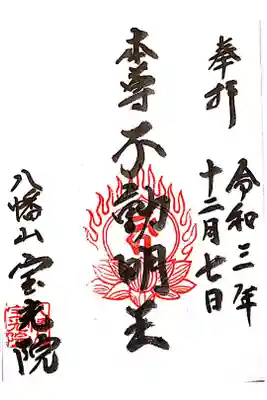 奉拝
令和三年
十二月七日
本尊 不動明王
八幡山 宝光院